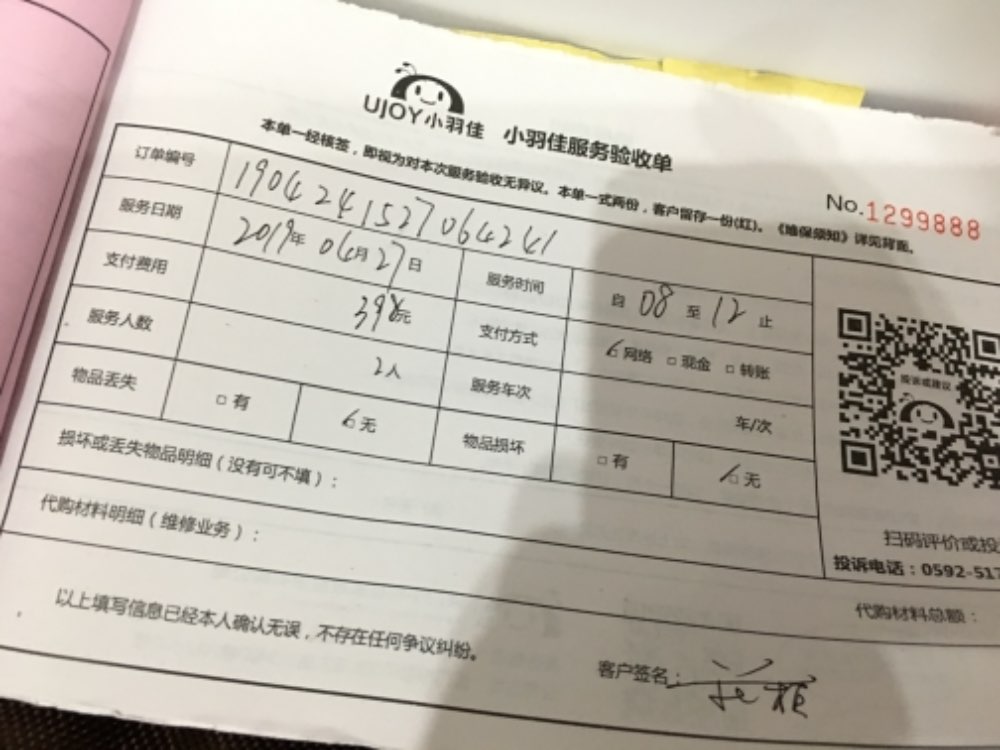 UJOY小羽佳 小羽佳服务验收单
本单一经核签，即视为对本次服务验收无异议。本单一式两份，客户留存一份(红)。《维保须知》详见背面。
No.1299888
订单编号 1904241527064241
服务日期 2019年04月27日 服务时间 自08至12止
支付费用 398元 支付方式 网络 □现金 □转账
服务人数 2人 服务车次 车/次
物品丢失 □有 无 物品损坏 □有 □无
投诉或建议
损坏或丢失物品明细（没有可不填）：
扫码评价或投
代购材料明细（维修业务）：
投诉电话：0592-517
代购材料总额：
以上填写信息已经本人确认无误，不存在任何争议纠纷。
客户签名：